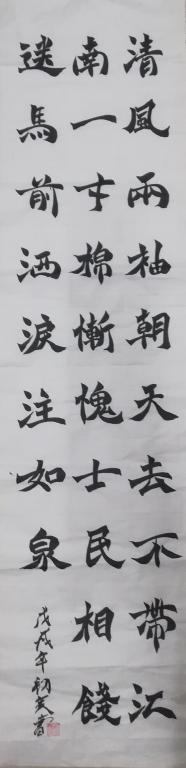 清風兩袖朝天去不帶江
南一寸棉慚愧士民相餞
送馬前洒淚注如泉
戊戌年初英書